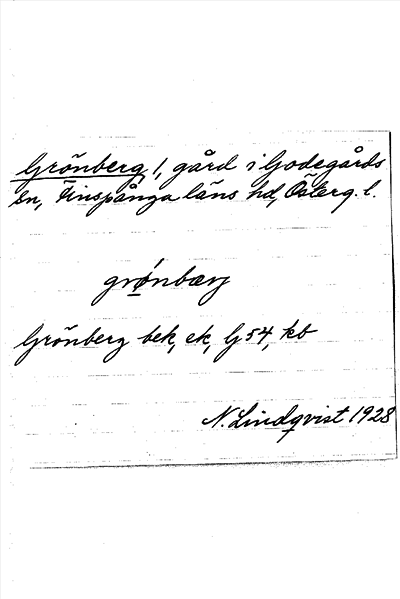 Grönberg 1, gård i Godegårds
sn, Finspånga läns hd, Österg. l.
grø̀nbærj
Grönberg bek, ek, G54, kb
N. Lindqvist 1928